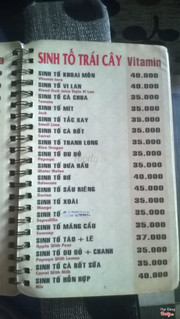 SINH TỐ TRÁI CÂY Vitamin
SINH TỐ KHOAI MÔN 40.000
SINH TỐ VI LAN 40.000
SINH TỐ CÀ CHUA 35.000
Tomato
SINH TỐ MÍT 35.000
Jack
SINH TỐ TẮC XAY 35.000
SINH TỐ CÀ RỐT 35.000
Carrot
SINH TỐ THANH LONG 35.000
SINH TỐ ĐU ĐỦ 35.000
Papaya
SINH TỐ DƯA HẤU 35.000
Water Melon
SINH TỐ BƠ 40.000
Avocado
SINH TỐ SẦU RIÊNG 40.000
Durian
SINH TỐ XOÀI 35.000
Mango
SINH TỐ 35.000
SINH TỐ MÃNG CẦU 35.000
SINH TỐ TÁO + LÊ 37.000
Apple With Pear
SINH TỐ ĐU ĐỦ + CHANH 35.000
Papaya With Lemon
SINH TỐ CÀ RỐT SỮA 35.000
Carrot With Milk
SINH TỐ HỖN HỢP 40.000
Mix